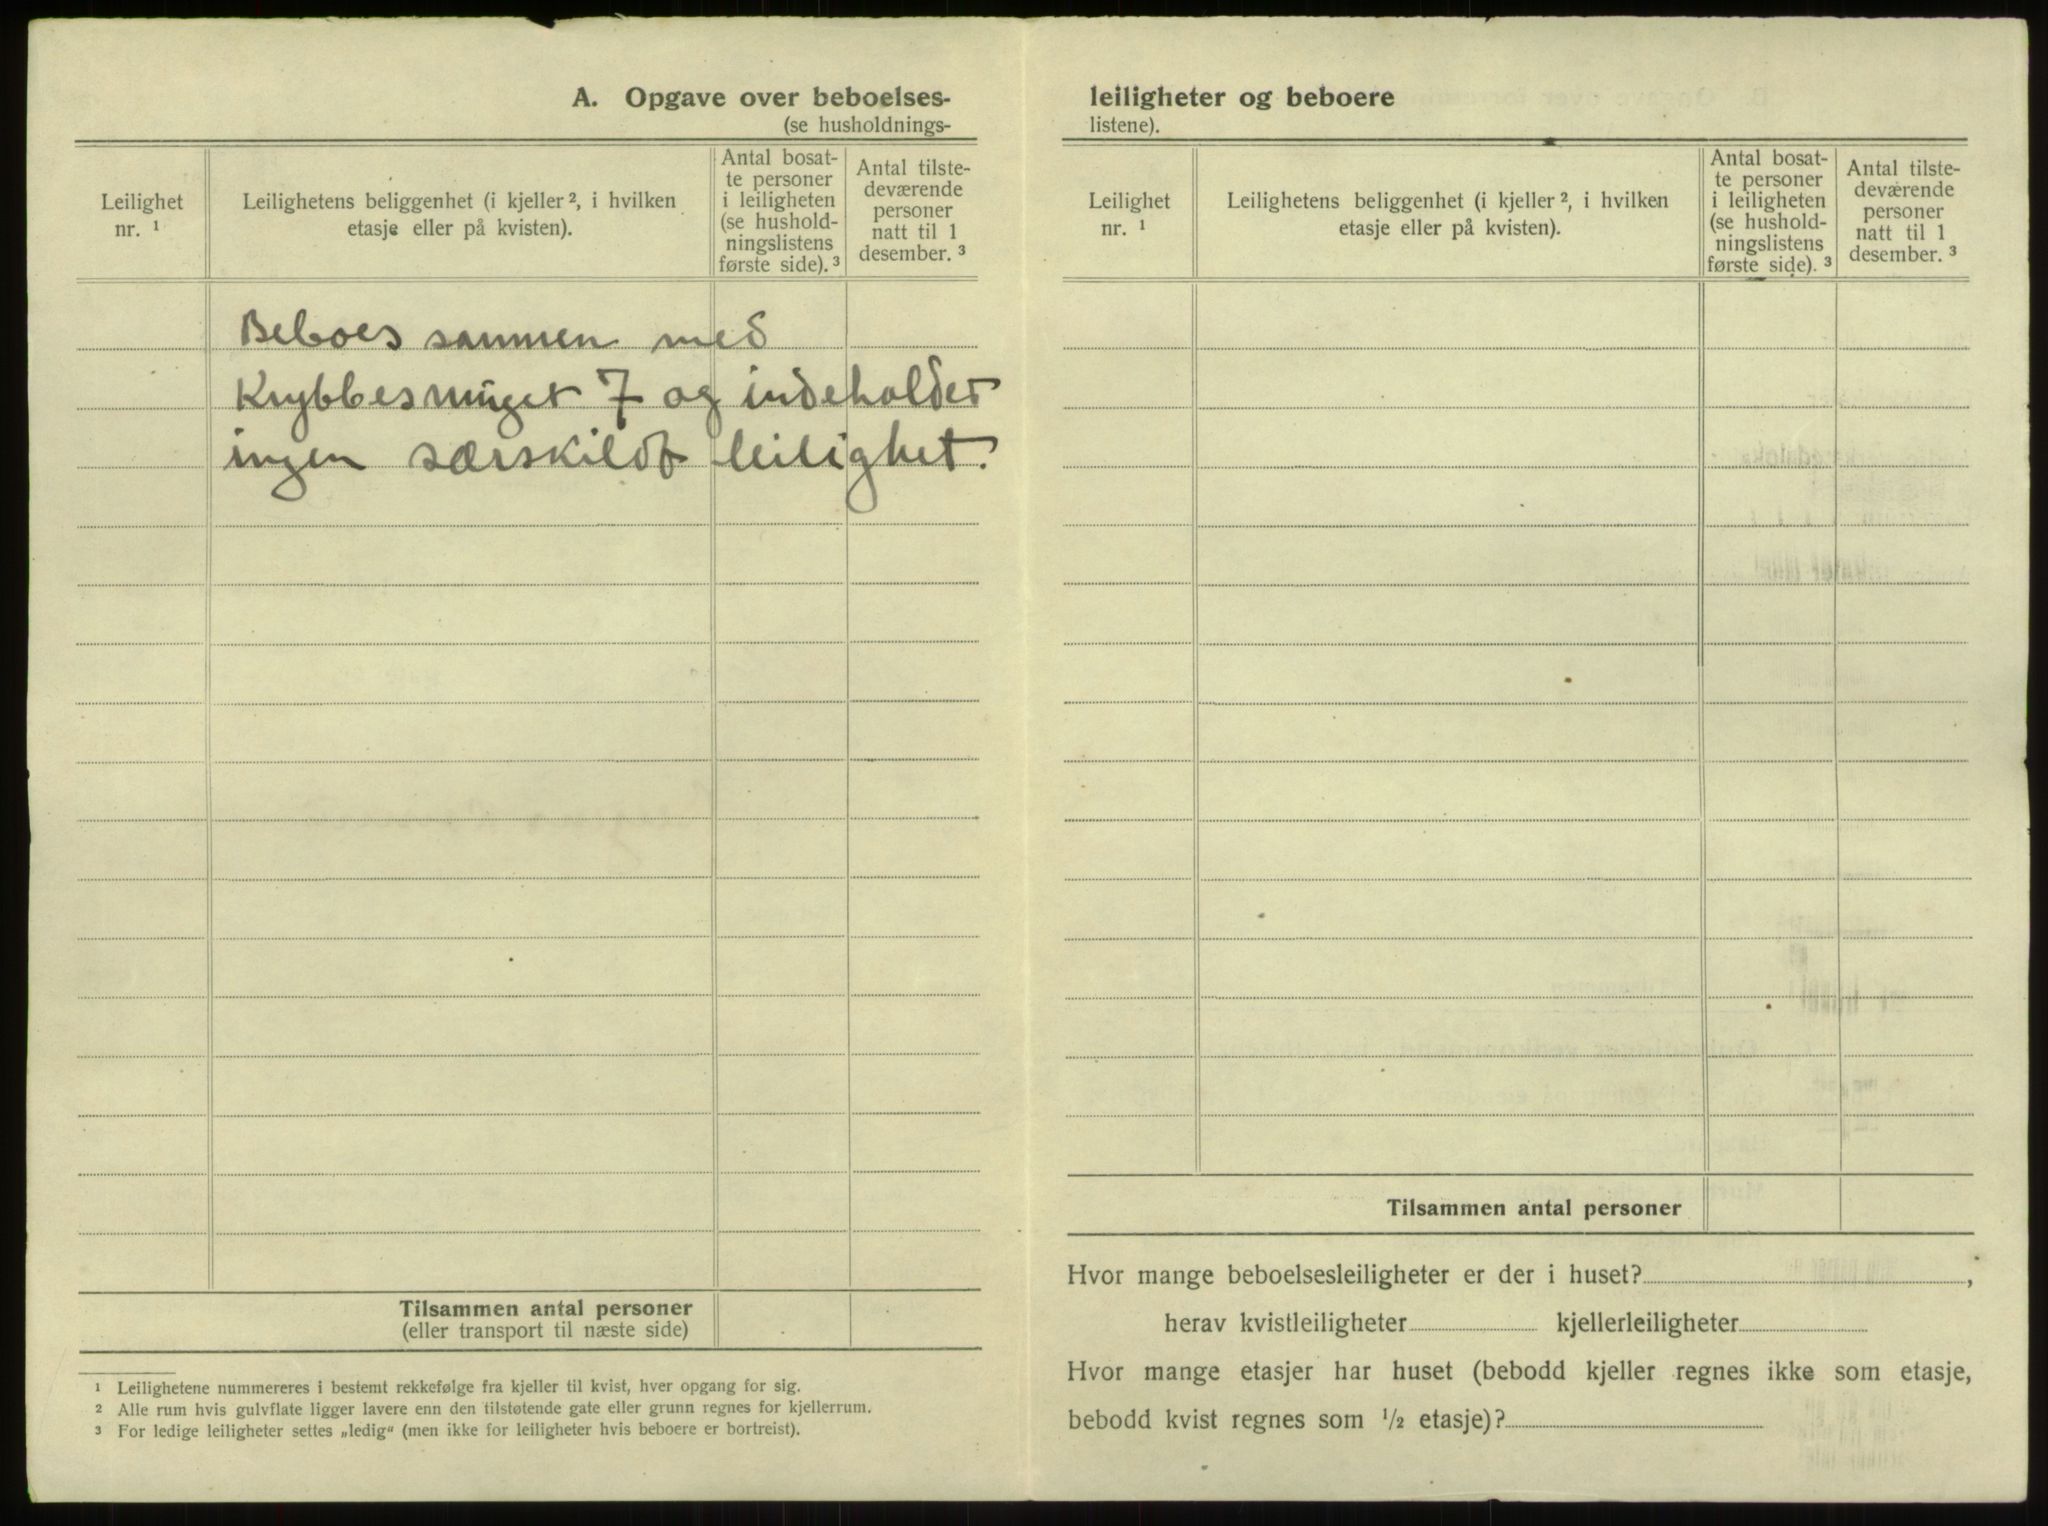 A. Opgave over beboelses-
(se husholdnings-
Leilighet
nr. ¹
Leilighetens beliggenhet (i kjeller ², i hvilken
etasje eller på kvisten).
Antal bosat-
te personer
i leiligheten
(se hushold-
ningslistens
første side). ³
Antal tilste-
deværende
personer
natt til 1
desember. ³
Beboes sammen med
Krybbesmuget 7 og indeholder
ingen særskildt leilighet.
Tilsammen antal personer
(eller transport til næste side)
¹ Leilighetene nummereres i bestemt rekkefølge fra kjeller til kvist, hver opgang for sig.
² Alle rum hvis gulvflate ligger lavere enn den tilstøtende gate eller grunn regnes for kjellerrum.
³ For ledige leiligheter settes „ledig“ (men ikke for leiligheter hvis beboere er bortreist).
leiligheter og beboere
listene).
Leilighet
nr. ¹
Leilighetens beliggenhet (i kjeller ², i hvilken
etasje eller på kvisten).
Antal bosat-
te personer
i leiligheten
(se hushold-
ningslistens
første side). ³
Antal tilste-
deværende
personer
natt til 1
desember. ³
Tilsammen antal personer
Hvor mange beboelsesleiligheter er der i huset? ,
herav kvistleiligheter kjellerleiligheter
Hvor mange etasjer har huset (bebodd kjeller regnes ikke som etasje,
bebodd kvist regnes som ½ etasje)?